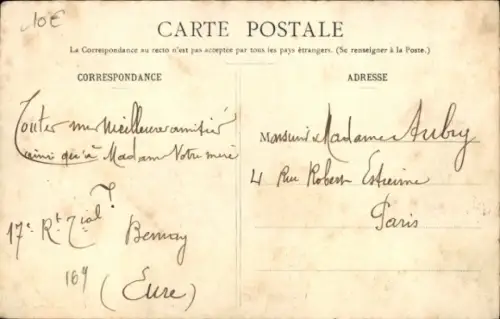 10€
CARTE POSTALE
La Correspondance au recto n'est pas acceptée par tous les pays étrangers. (Se renseigner à la Poste.)
CORRESPONDANCE
Toutes mes meilleures amitiés
ainsi qu'à Madame Votre mère
17e Rt
Bernay
169
(Eure)
ADRESSE
Monsieur & Madame Aubry
4 Rue Robert Estienne
Paris